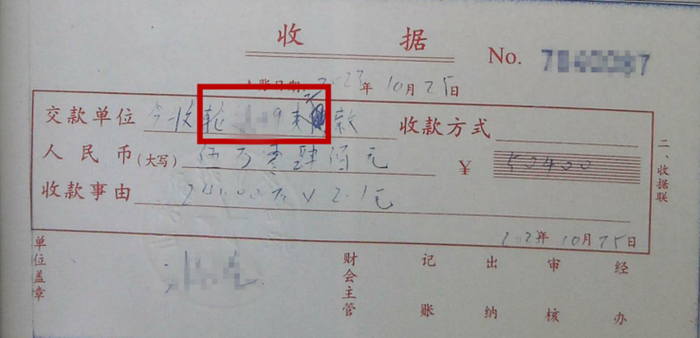 收据
No. 7840087
入账日期: 2023年10月25日
交款单位 今收轮 9 款 收款方式
人民币(大写) 伍万零肆佰元 ¥ 50400
收款事由 24000 x 2.1元
二、收据联
2023年10月25日
单位盖章 财会主管 记账 出纳 审核 经办